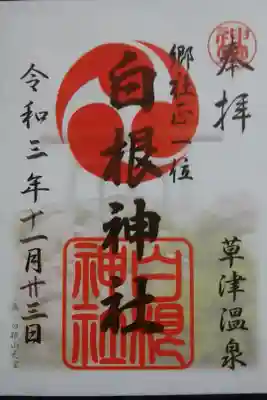 奉拝
郷社正一位
白根神社
草津温泉
令和三年十一月廿三日
白根神社